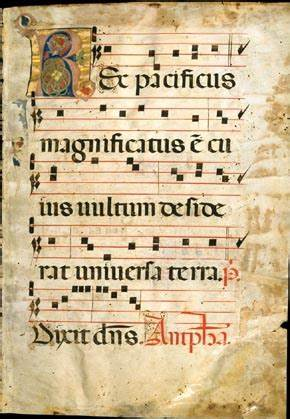 Rex pacificus
magnificatus ē cu
ius uultum deside
rat universa terra. p̄.
Dixit dn̄s. Antpħa.